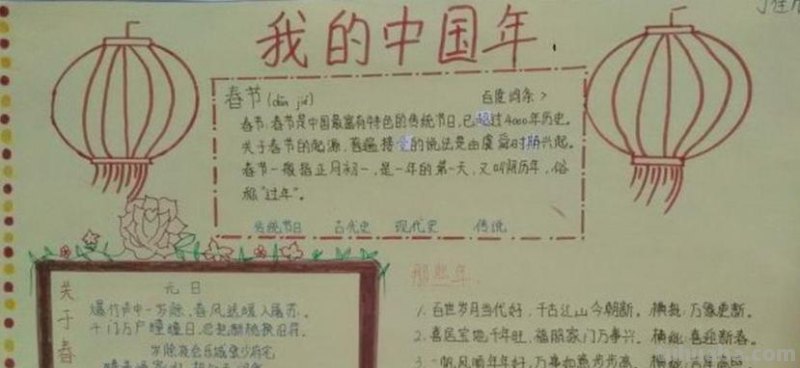 我的中国年
春节(chūn jié) 百度词条>
春节,春节是中国最富有特色的传统节日,已超过4000年历史。
关于春节的起源,普遍接受的说法是由虞舜时期兴起。
春节一般指正月初一,是一年的第一天,又叫阴历年,俗
称"过年"。
传统节日 古代史 现代史 传说
关于春
元日
爆竹声中一岁除,春风送暖入屠苏。
千门万户曈曈日,总把新桃换旧符。
岁除夜会乐城张少府宅
那些年
1. 百世岁月当代好,千古江山今朝新。横批:万象更新。
2. 喜居宝地千年旺,福照家门万事兴。横批:喜迎新春。
3. 一帆风顺年年好,万事如意步步高。横批: